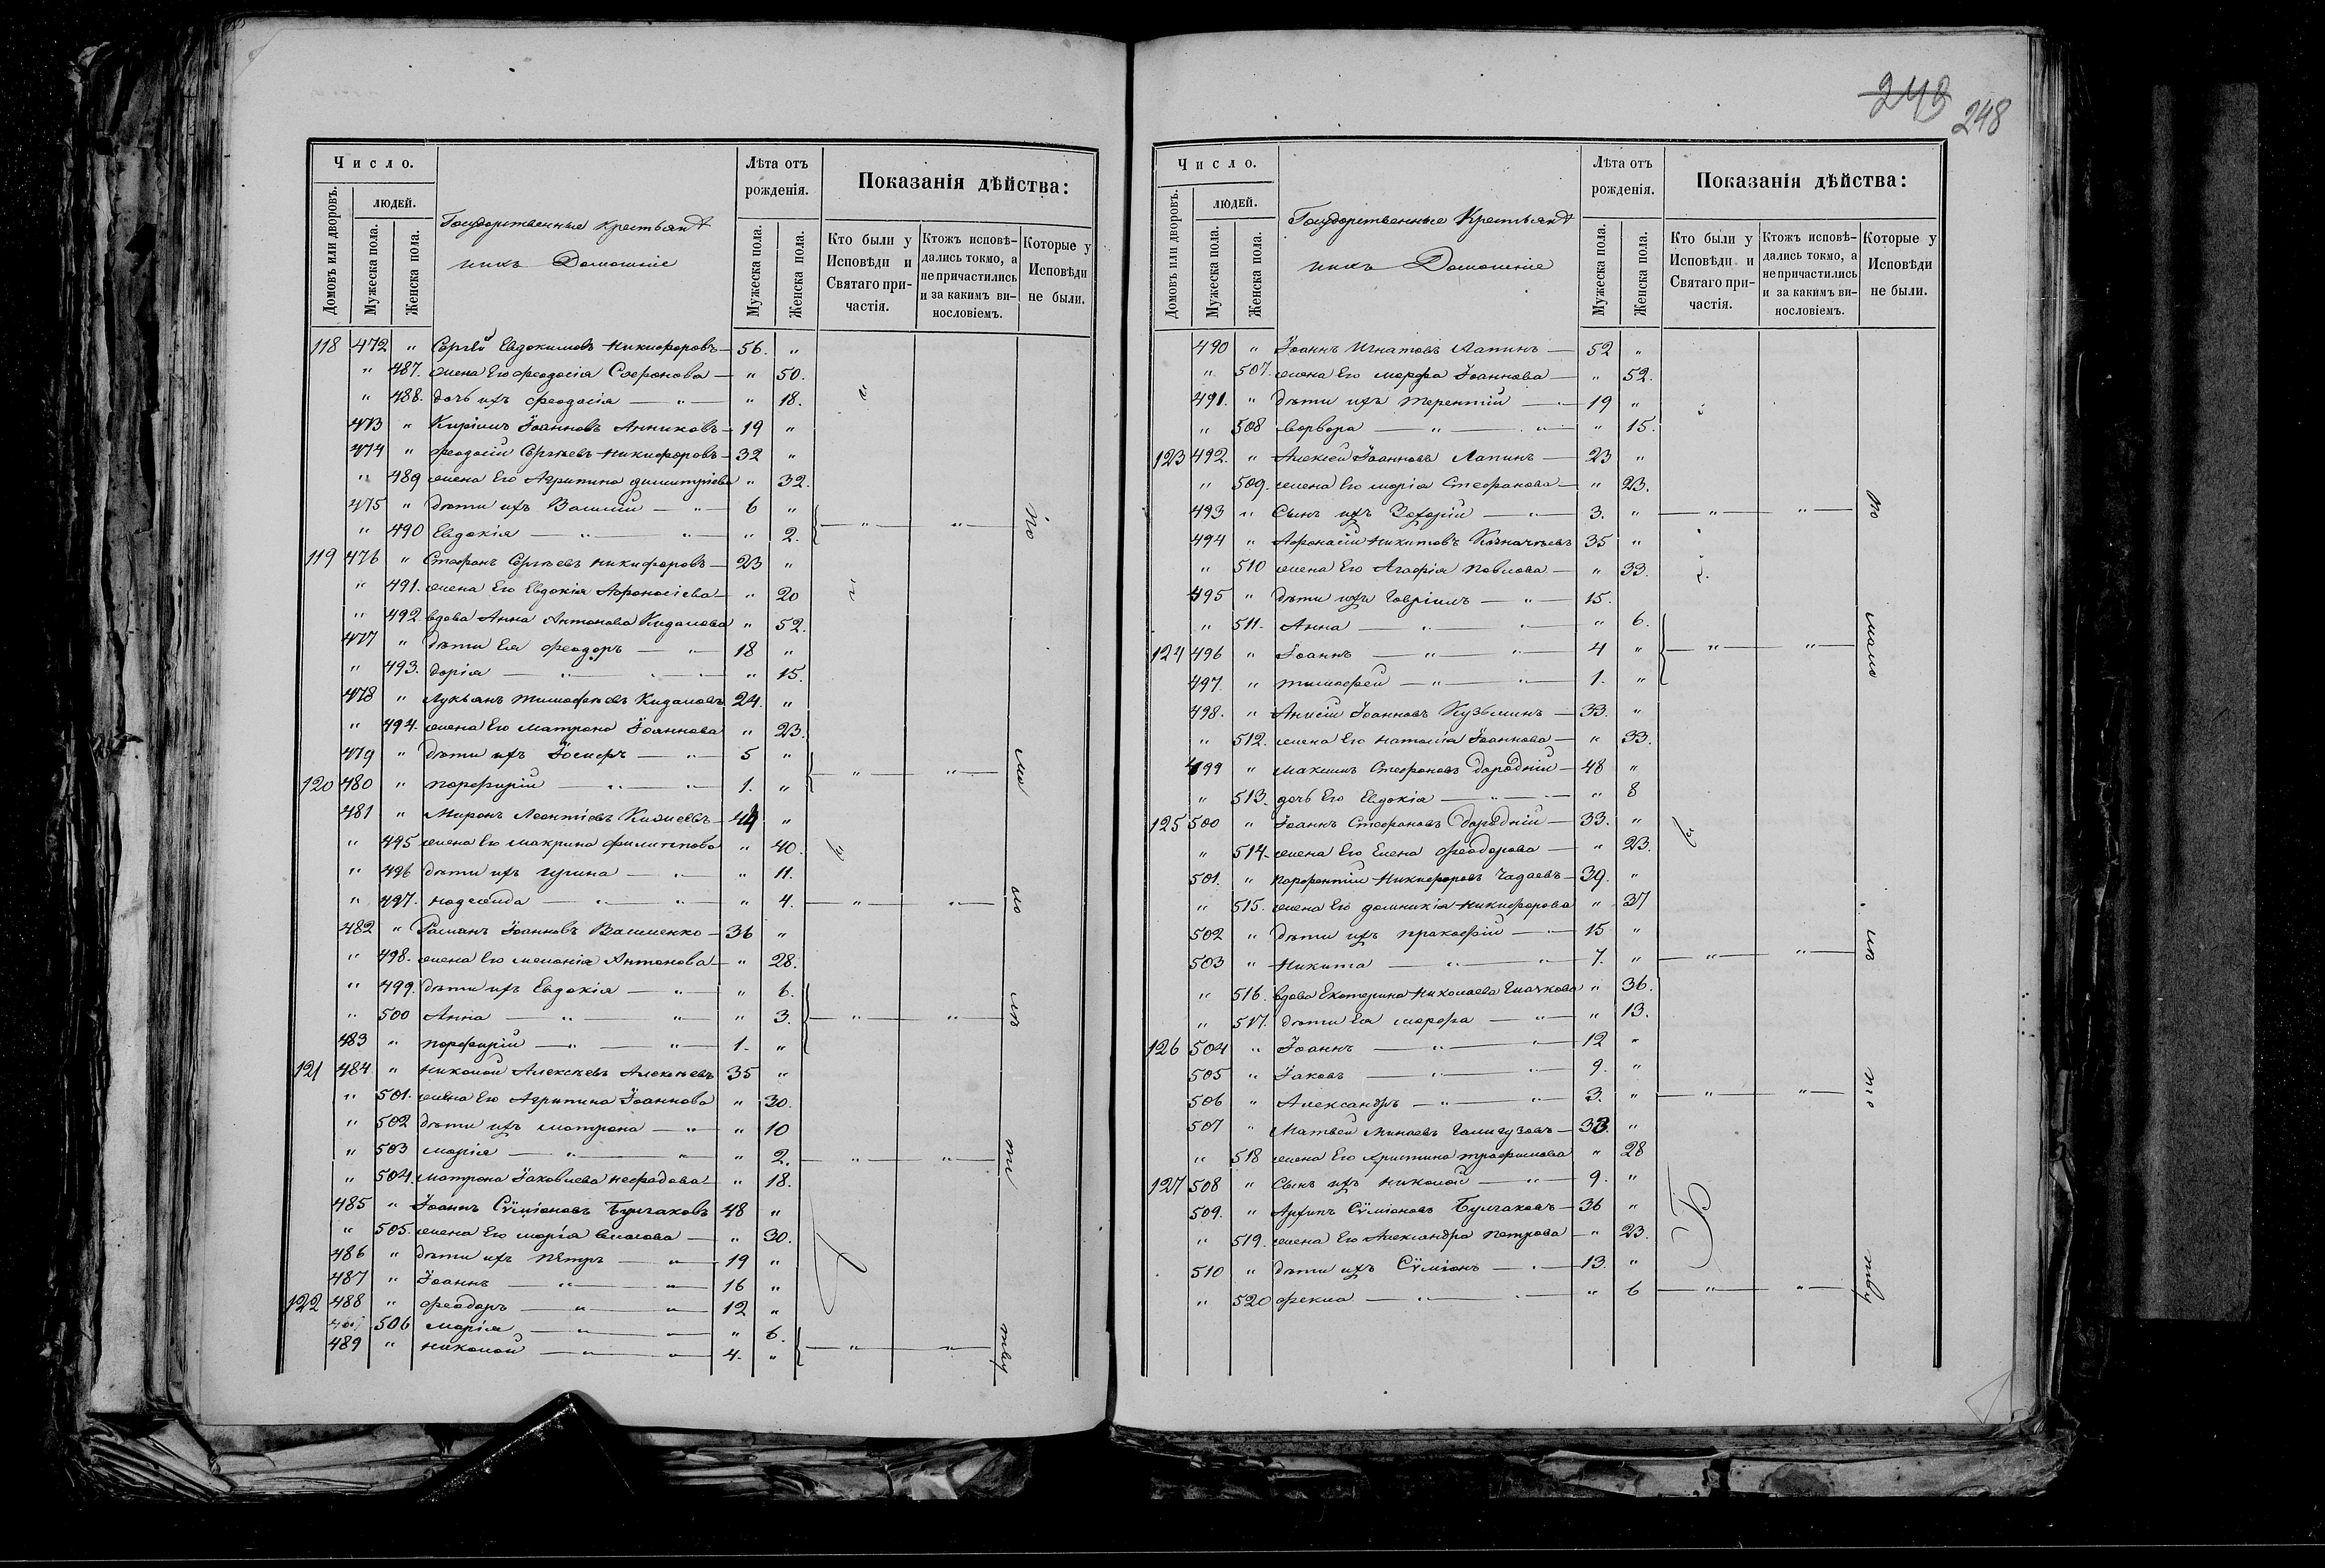 248
248
Число.
Домовъ или дворовъ.
людей.
Мужеска пола.
Женска пола.
Государственные крестьяне и ихъ Домашніе
Лѣта отъ рожденія.
Мужеска пола.
Женска пола.
Показанія дѣйства:
Кто были у Исповѣди и Святаго причастія.
Ктожъ исповѣдались токмо, а не причастились и за какимъ винословіемъ.
Которые у Исповѣди не были.
118 472 " Сергѣй Евдокимовъ Никифоровъ — 56. "
" 487. жена Его Феодосія Софронова — " 50.
" 488. дочь ихъ Феодосія — " — " 18.
473 " Кирилъ Іоанновъ Анниковъ — 19 "
474 " Феодосій Сергѣевъ Никифоровъ — 32 "
" 489 жена Его Агрипина Димитріева " 32.
475 " дѣти ихъ Василій — " — 6 "
" 490 Евдокія — " — " 2.
119 476 " Стефанъ Сергѣевъ Никифоровъ — 23 "
" 491. жена Его Евдокія Афонасіева — " 20
" 492 вдова Анна Антонова Кидалова " 52.
477 " дѣти Ея Феодоръ — " — 18 "
" 493. Дарія — " — " 15.
478 " Лукьянъ Тимофѣевъ Кидаловъ 24. "
" 494. жена Его Матрона Іоаннова " 23.
479 " дѣти ихъ Іосифъ — " — 5 "
120 480 " Порфирій — " — 1. "
481 " Миронъ Леонтіевъ — 44 "
" 495 жена Его Макрина Филиппова " 40.
" 496 дѣти ихъ — " — " 11.
" 497. Надежда — " — " 4.
482 " Романъ Іоанновъ Василенко — 36 "
" 498. жена Его Меланія Антонова — " 28.
" 499. дѣти ихъ Евдокія — " — " 6.
" 500 Анна — " — " 3.
483 " Порфирій — " — 1. "
121 484 " Николай Алексѣевъ Алексѣевъ 35 "
" 501. жена Его Агрипина Іоаннова " 30.
" 502 дѣти ихъ Матрона — " — " 10
" 503 Марія — " — " 2.
" 504. Матрона Іаковлева — " 18.
485 " Іоаннъ Сѵміоновъ Булгаковъ 48 "
" 505. жена Его Марія Власова — " 30.
486 " дѣти ихъ Пётръ — " — 19 "
487 " Іоаннъ — " — 16 "
122 488 " Феодоръ — " — 12 "
506 Марія — " — " 6.
489 " Николай — " — 4. "
Число.
Домовъ или дворовъ.
людей.
Мужеска пола.
Женска пола.
Государственные Крестьяне и ихъ Домашніе
Лѣта отъ рожденія.
Мужеска пола.
Женска пола.
Показанія дѣйства:
Кто были у Исповѣди и Святаго причастія.
Ктожъ исповѣдались токмо, а не причастились и за какимъ винословіемъ.
Которые у Исповѣди не были.
490 " Іоаннъ Игнатовъ Лапинъ — 52 "
" 507. жена Его Марфа Іоаннова — " 52.
491. " дѣти ихъ Терентій — 19 "
" 508 Варвара — " — " 15.
123 492. " Алексѣй Іоанновъ Лапинъ — 23 "
" 509. жена Его Марія Стефанова — " 23.
493 " Сынъ ихъ Захарій — " — 3. "
494 " Афонасій Никитовъ Казначѣевъ 35 "
" 510 жена Его Агафія Павлова — " 33.
495 " дѣти ихъ Гавріилъ — " — 15.
" 511. Анна — " — " 6.
124 496 " Іоаннъ — " — 4 "
497. " Тимофей — " — 1. "
498. " Анисій Іоанновъ Кузьминъ — 33. "
" 512. жена Его Наталія Іоаннова — " 33.
499 " Максимъ Стефановъ — 48 "
" 513. дочь Его Евдокія — " — " 8
125 500 " Іоаннъ Стефановъ — 33. "
" 514. жена Его Елена Феодорова — " 23.
501. " Парфентій Никифоровъ Чадаевъ — 39. "
" 515. жена Его Домникія Никифорова " 37
502 " дѣти ихъ Прокофій — 15 "
503 " Никита — " — 7. "
" 516. вдова Екатерина Николаева " 36.
" 517. дѣти Ея Марфа — " — " 13.
126 504 " Іоаннъ — " — 12 "
505 " Іаковъ — " — 9. "
506 " Александръ — " — 3. "
507 " Матвей Минаевъ — 33. "
" 518 жена Его Христина Трофимова " 28
127 508 " Сынъ ихъ Николай — " — 9. "
509. " Архипъ Сѵміоновъ Булгаковъ — 36 "
" 519. жена Его Александра Петрова — " 23.
510 " дѣти ихъ Сѵміонъ — 13. "
" 520 Фекла — " — " 6
по мало лѣтству